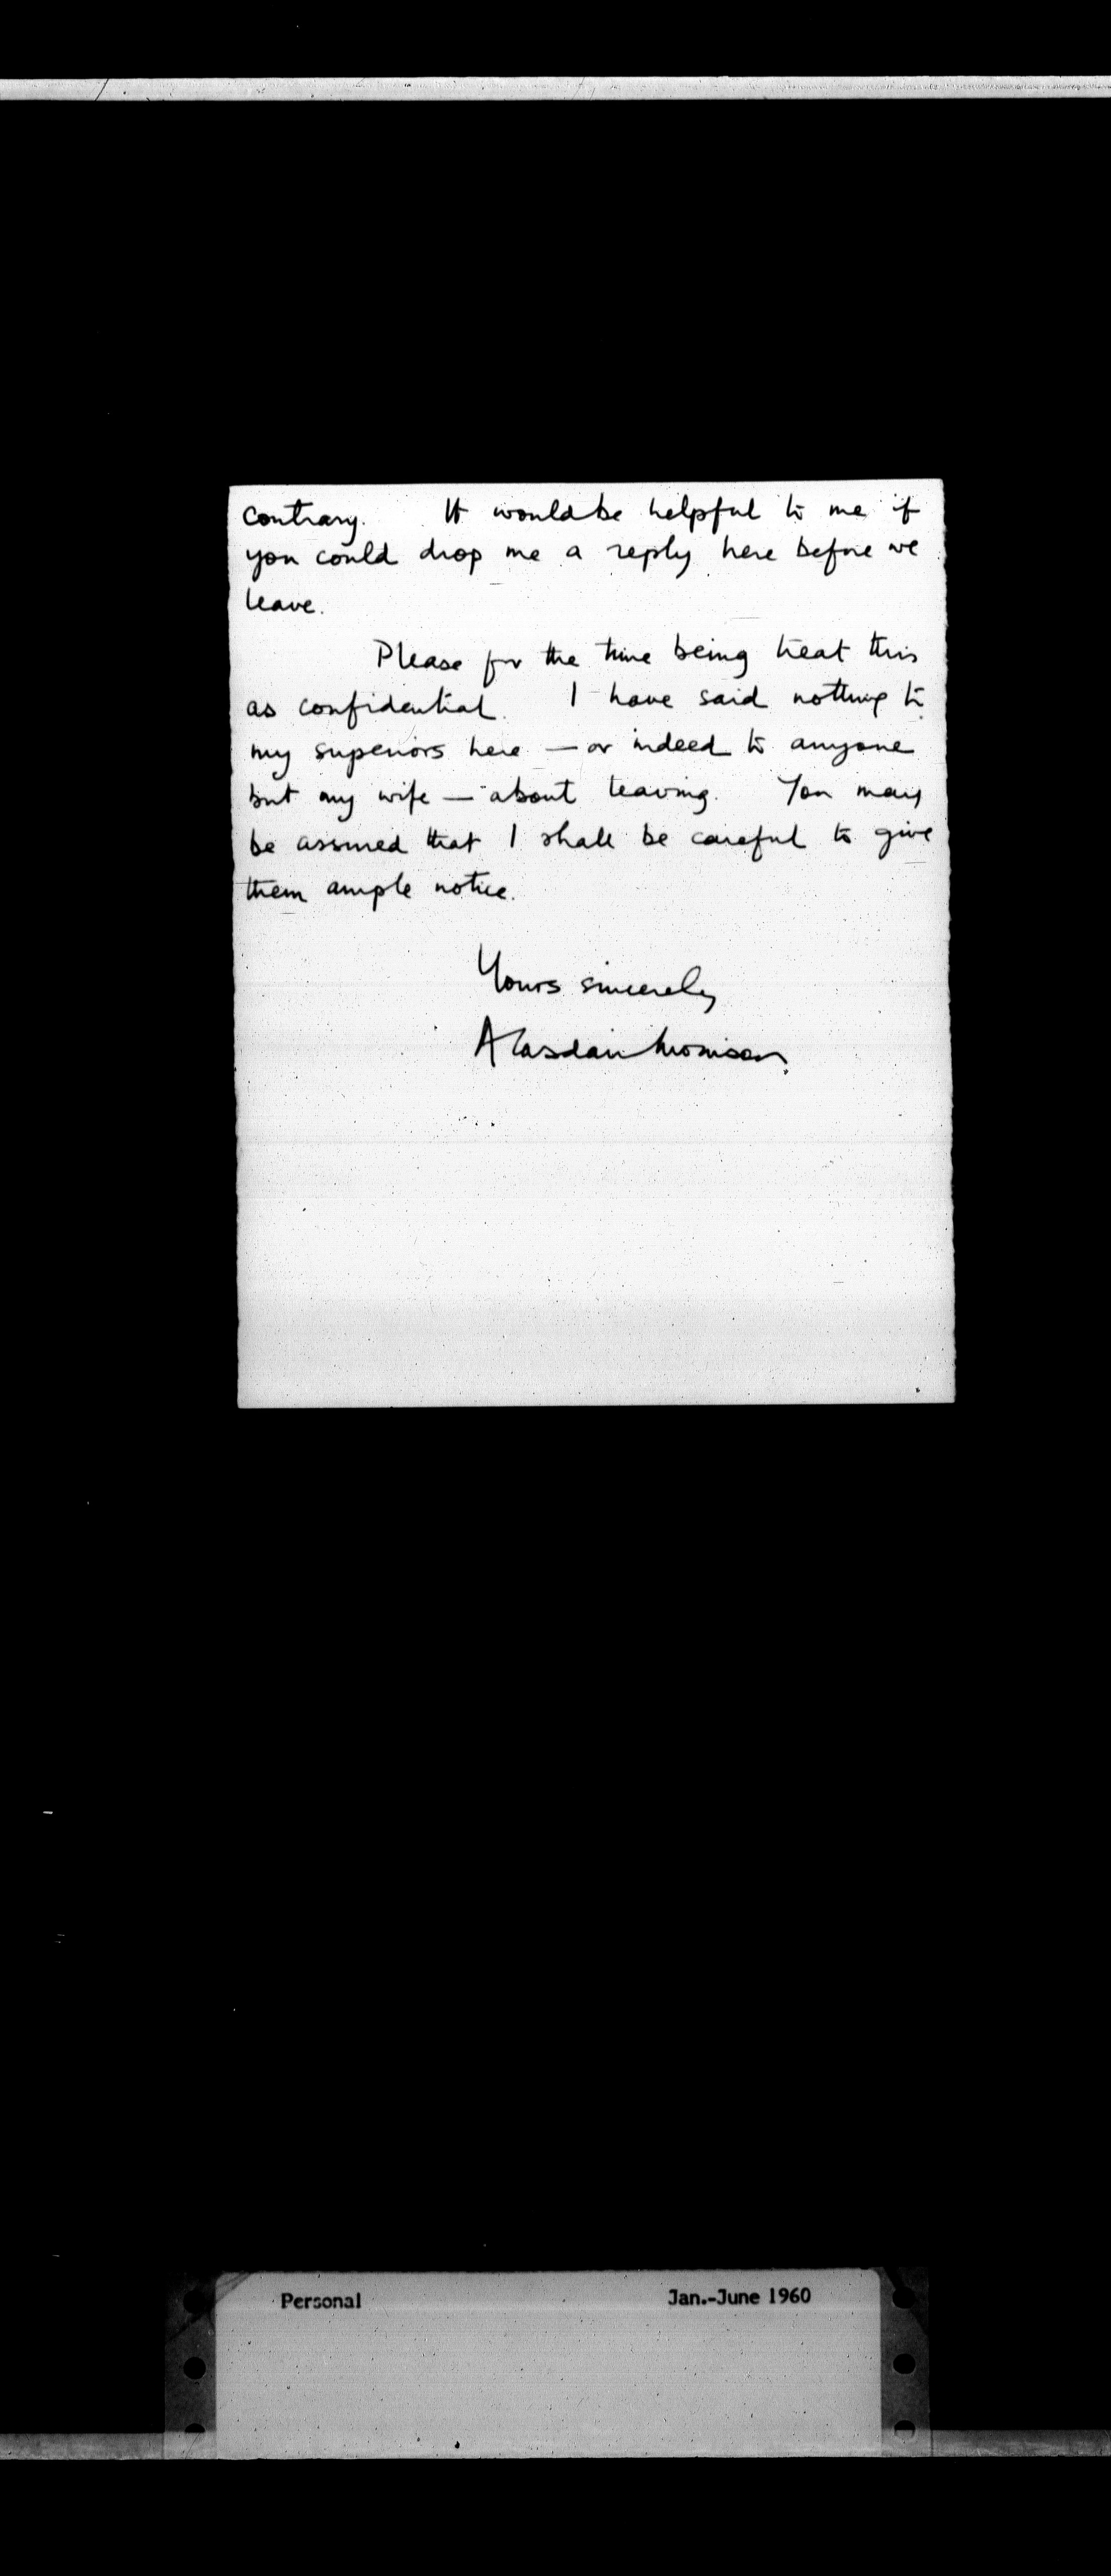 contrary. It would be helpful to me if
you could drop me a reply here before we
leave.
Please for the time being treat this
as confidential. I have said nothing to
my superiors here — or indeed to anyone
but my wife — about leaving. You may
be assured that I shall be careful to give
them ample notice.
Yours sincerely
Alasdair Morrison.
Personal Jan.-June 1960